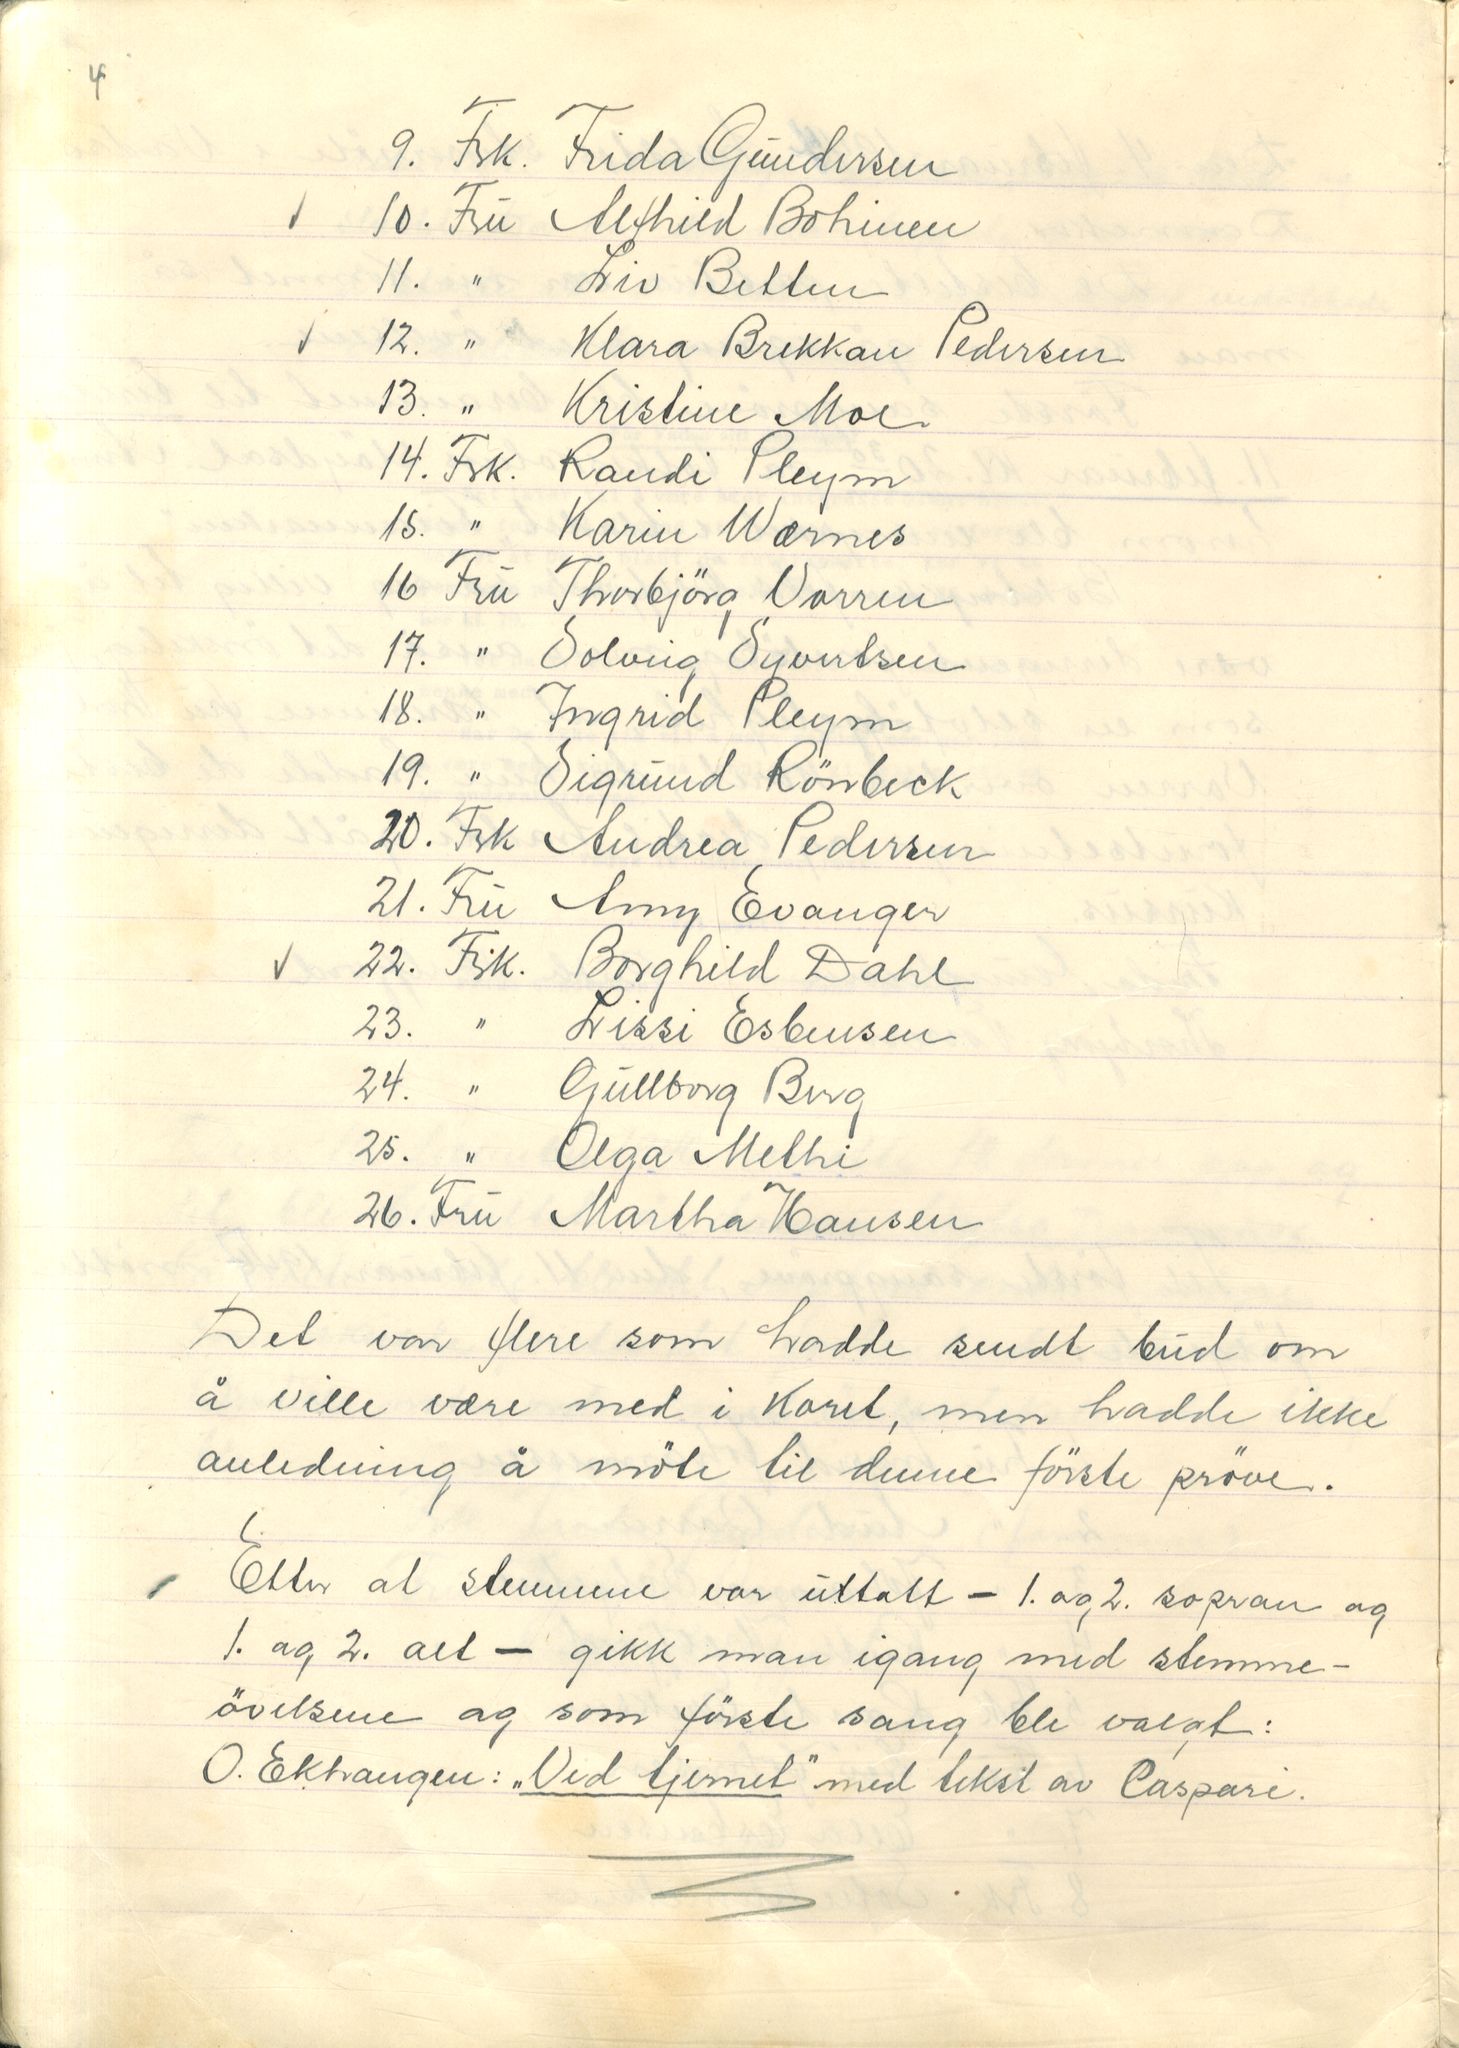 4
9. Frk. Frida Gundersen
✓ 10. Fru Alfhild Bohinen
11. " Liv Betten
✓ 12. " Klara Brekkan Pedersen
13. " Kristine Moe
14. Frk. Randi Pleym
15. " Karin Wærnes
16 Fru Thorbjörg Vorren
17. " Solveig Syvertsen
18. " Ingrid Pleym
19. " Sigrund Rönbeck
20. Frk Andrea Pedersen
21. Fru Anny Evanger
✓ 22. Frk. Borghild Dahl
23. " Lissi Esbensen
24. " Gullborg Berg
25. " Olga Methi
26. Fru Martha Hansen
Det var flere som hadde sendt bud om
å ville være med i koret, men hadde ikke
anledning å möte til denne förste pröve.
Etter at stemmene var uttatt – 1. og 2. sopran og
1. og 2. alt – gikk man igang med stemme-
övelsene og som förste sang ble valgt:
O. Ekhaugen: „Ved tjernet" med tekst av Caspari.